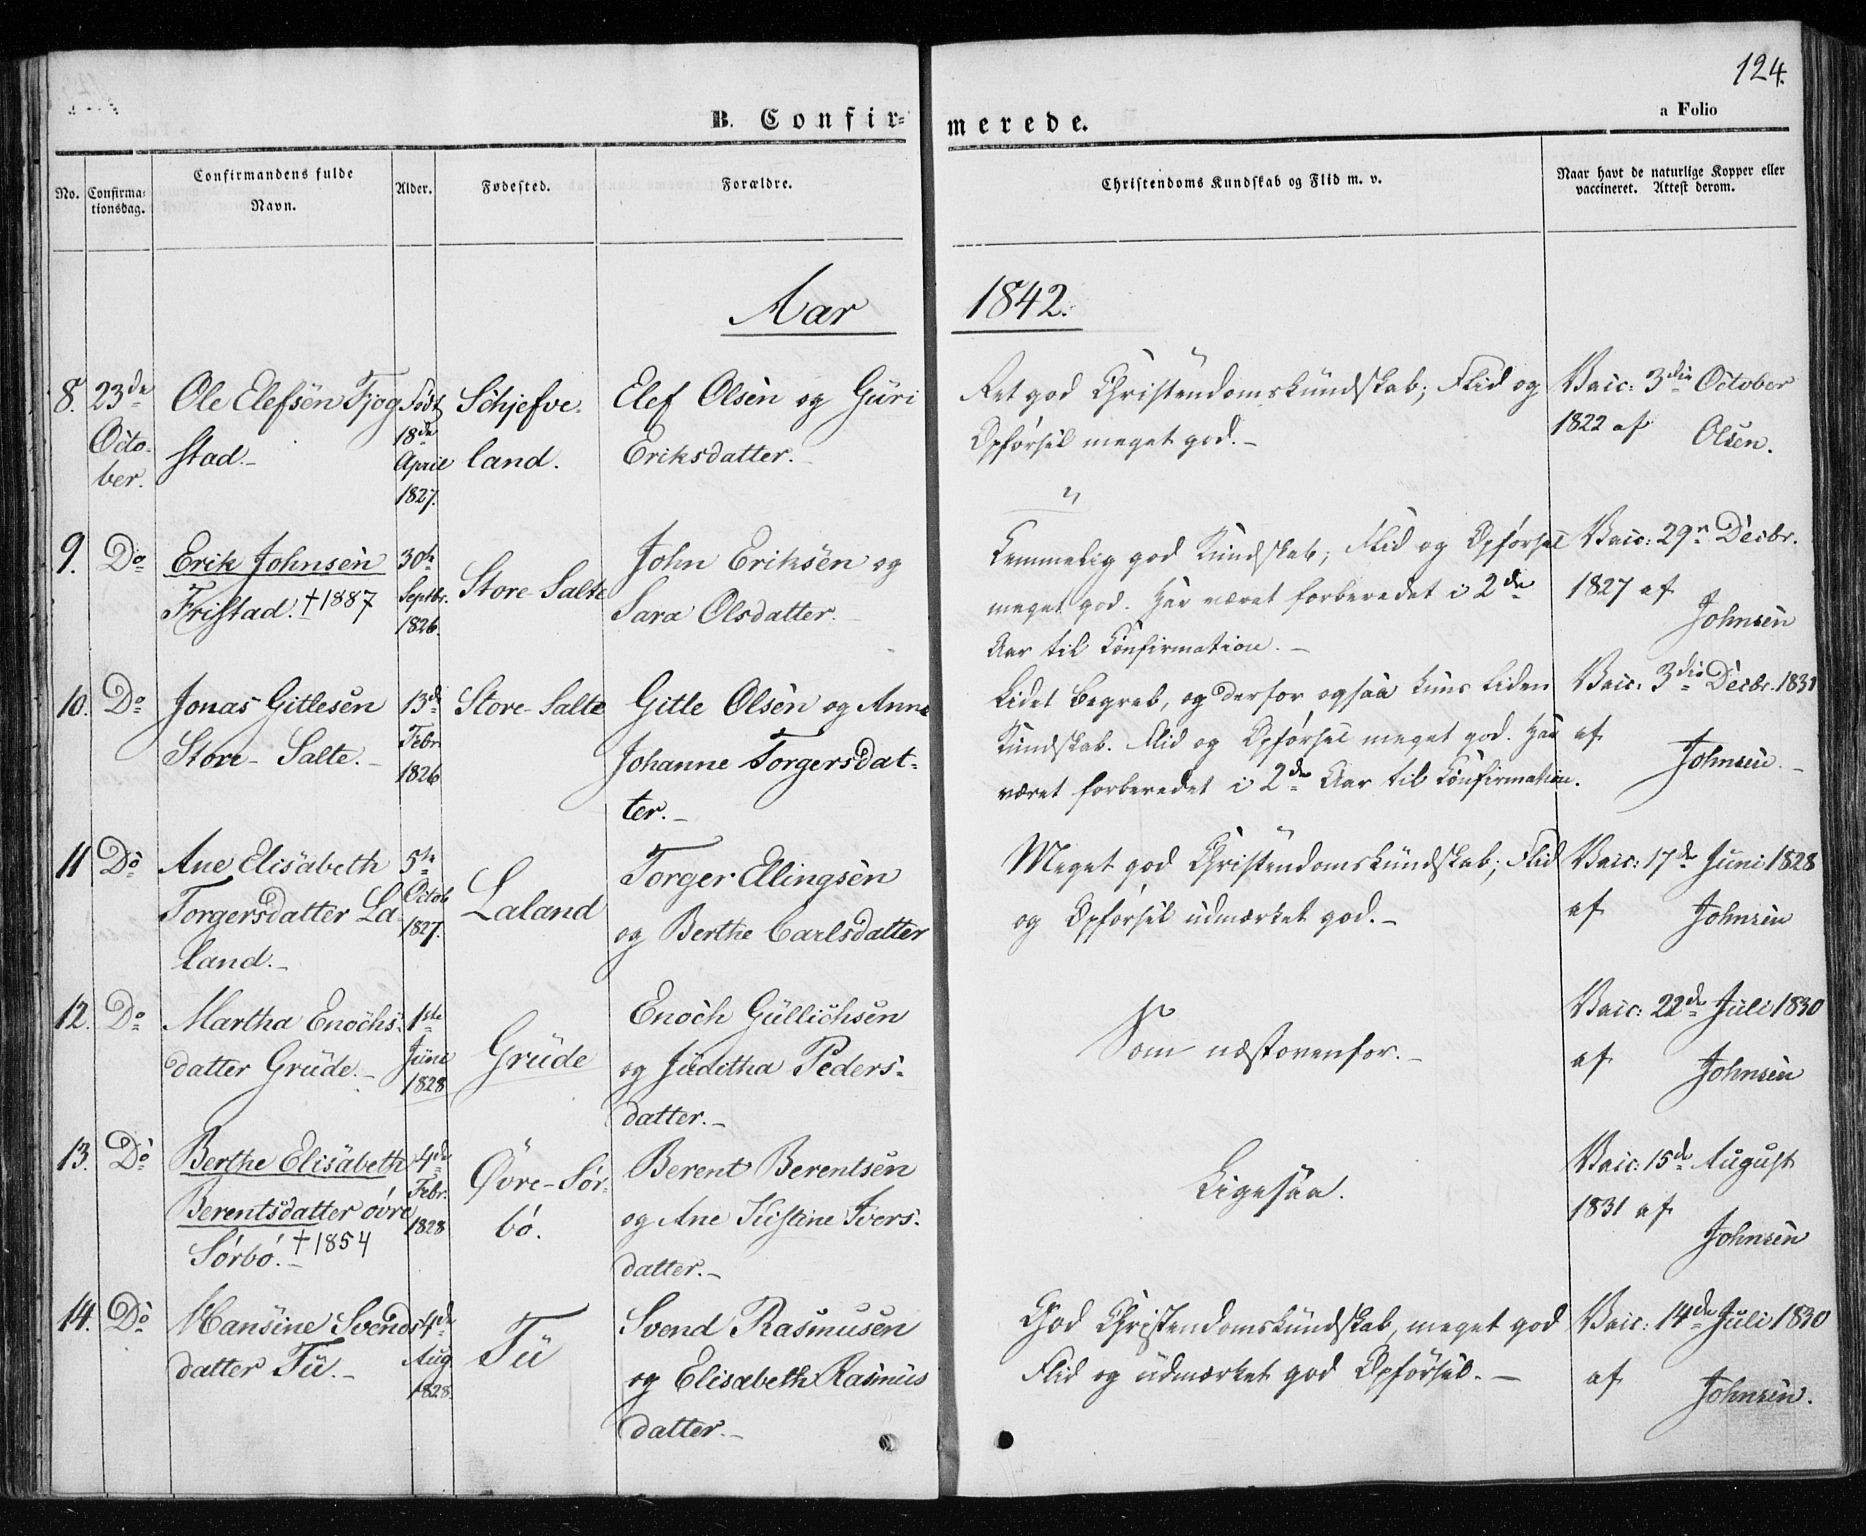 124.
a Folio
B. Confir=
merede.
No.
Confirma=
tionsdag.
Confirmandens fulde
Navn.
Alder.
Fødested.
Forældre.
Christendoms Kundskab og Flid m. v.
Naar havt de naturlige Kopper eller
vaccineret. Attest derom.
Aar 1842.
8. 23de
Octo-
ber.
Ole Elefsen Tjog
stad.-
Født
18de
April
1827.
Schjefve-
land.
Elef Olsen og Guri
Eriksdatter.-
Ret god Christendomskundskab; Flid og
Opførsel meget god.-
Vacc: 3die October
1822 af
Olsen.
9. Do
Erik Johnsen
Fristad. †1887
30te
Septbr.
1826.
Store-Salte
John Eriksen og
Sara Olsdatter.-
Temmelig god Kundskab; Flid og Opførsel
meget god. Har været forberedet i 2de
Aar til Confirmation.-
Vacc: 29n Decbr.
1827 af
Johnsen
10. Do
Jonas Gitlesen
Store-Salte.-
13de
Febr
1826
Store-Salte
Gitle Olsen og Anne
Johanne Torgersdat-
ter.-
Lidet Begreb, og derfor ogsaa kuns liden
Kundskab. Flid og Opførsel meget god. Har
været forberedet i 2de Aar til Confirmation.
Vacc: 3die Decbr. 1831
af
Johnsen.-
11 Do
Ane Elisabeth
Torgersdatter La-
land.-
5te
Octob
1827.
Laland
Torger Ellingsen
og Berthe Carlsdatter
Meget god Christendomskundskab; Flid
og Opførsel udmærket god.-
Vacc: 17de Juni 1828
af
Johnsen
12. Do
Martha Enochs-
datter Grude.-
1ste
June
1828
Grude
Enoch Gullichsen
og Juditha Peders-
datter.-
Som næstovenfor.-
Vacc: 22de Juli 1830
af
Johnsen
13. Do
Berthe Elisabeth
Berentsdatter øvre
Sørbø.- †1854
4de
Febr.
1828
Øvre-Sør-
bø.
Berent Berentsen
og Ane Kistine Ivers-
datter.-
Ligesaa.
Vacc: 15de August
1831 af
Johnsen
14. Do
Hansine Svends
datter Tu.-
4de
Aug
1828.
Tu
Svend Rasmusen
og Elisabeth Rasmus
datter.-
God Christendomskundskab, meget god
Flid og udmærket god Opførsel.-
Vacc: 14de Juli 1830
af
Johnsen.